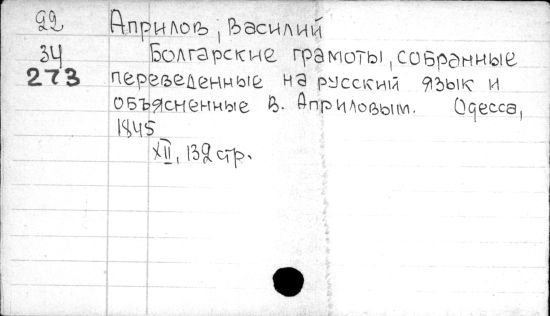 22 Априлов, Василий
34 Болгарские грамоты, собранные
273 переведенные на русский язык и
объясненные В. Априловым. Одесса,
1845
XII, 132 стр.